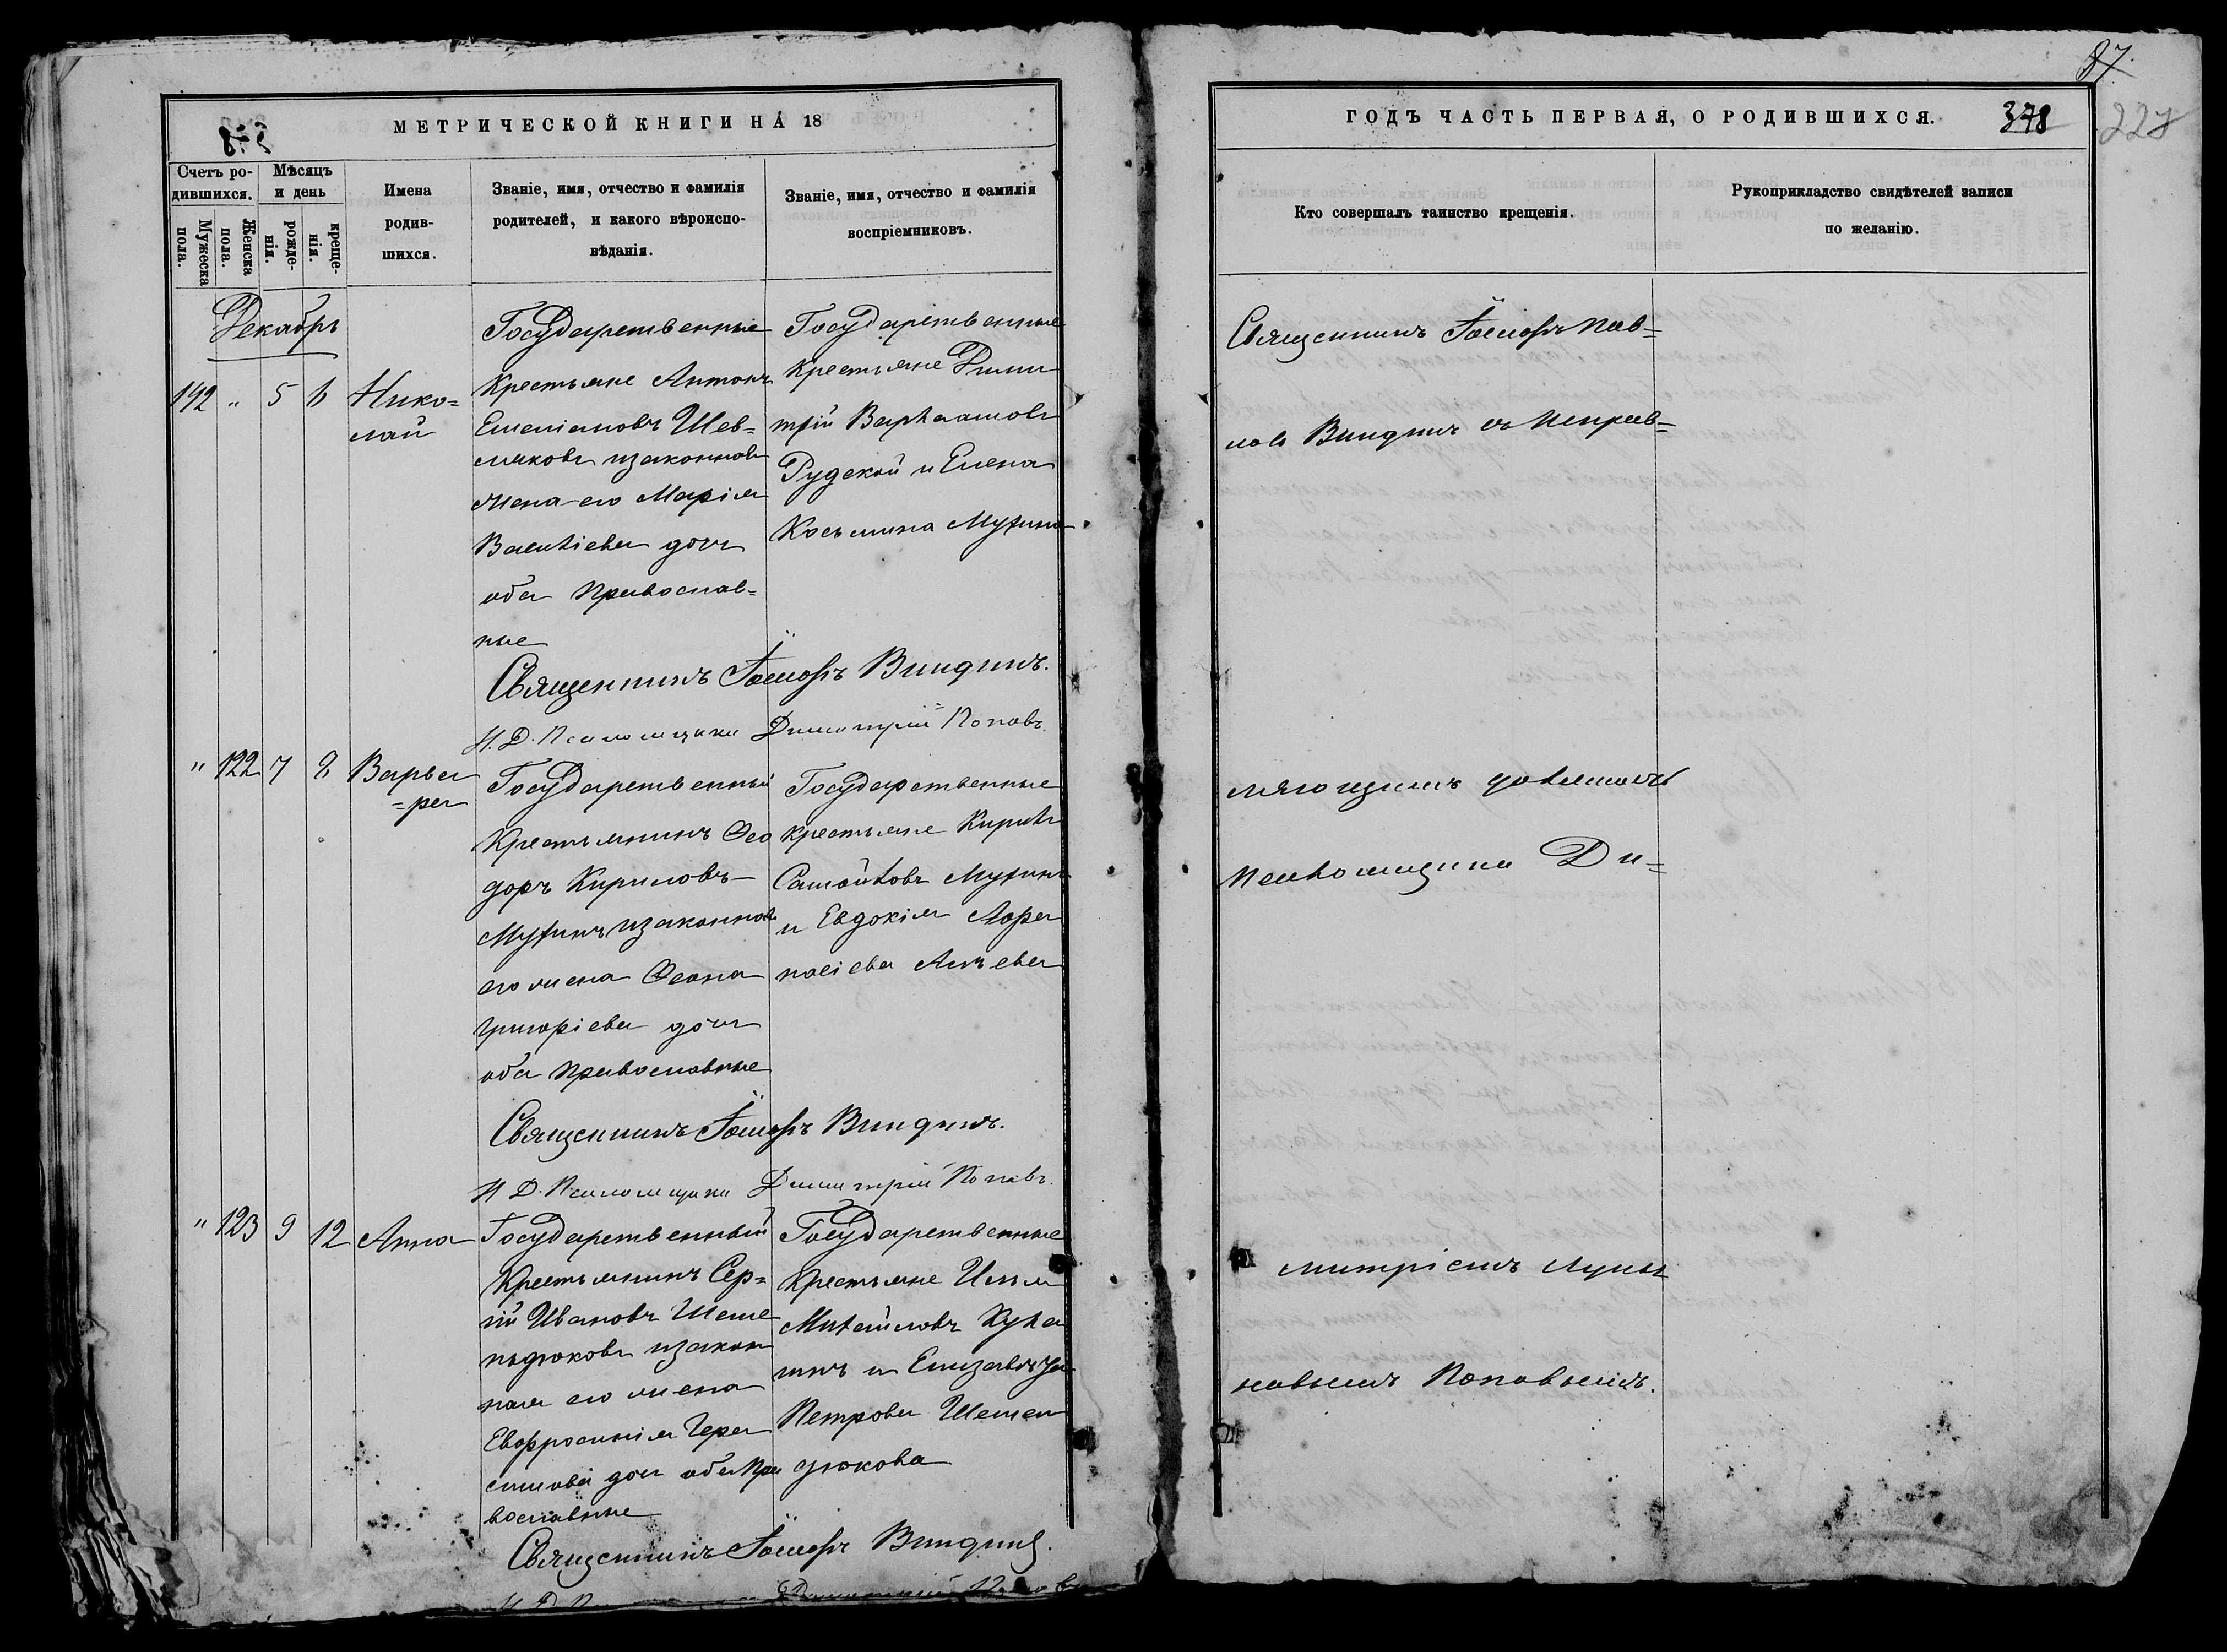 МЕТРИЧЕСКОЙ КНИГИ НА 18
Счетъ ро-
дившихся.
Мужеска
пола.
Женска
пола.
Мѣсяцъ
и день
рожде-
нія.
креще-
нія.
Имена
родив-
шихся.
Званіе, имя, отчество и фамилія
родителей, и какого вѣроиспо-
вѣданія.
Званіе, имя, отчество и фамилія
воспріемниковъ.
Декабрь
142 " 5 6
Нико=
лай
Государственные
Крестьяне Антонъ
Емеліановъ Шев=
ляковъ изаконная
жена его Марія
дочь
оба Православ=
ные
Государственные
крестьяне Дими
трій Варлаамовъ
Рудской и Елена
Косьмина Мухина
Священникъ Іосифъ Виндинъ.
И. Д. Псаломщика Димитрій Поповъ.
" 122 7 8
Варва
=ра
Государственный
Крестьянинъ Ѳео
доръ Кириловъ
Мухинъ изаконная
его жена Ѳеона
Григоріева дочь
оба Православные
Государственные
крестьяне
Мухинъ
и Евдокія Аѳа
насіева
Священникъ Іосифъ Виндинъ.
И Д. Псаломщика Димитрій Поповъ.
" 123 9 12
Анна
Государственный
Крестьянинъ Сер=
гій Ивановъ Шеме
ндюковъ изакон
ная его жена
Евфросинія Гера
симова дочь оба Пра
вославные
Государственные
Крестьяне Илья
Михайловъ
и Елизавета
Петрова Шемен
дюкова
Священникъ Іосифъ Виндинъ.
И Д П Димитрій Поповъ
87.
ГОДЪ ЧАСТЬ ПЕРВАЯ, О РОДИВШИХСЯ.
378
227
Кто совершалъ таинство крещенія.
Рукоприкладство свидѣтелей записи
по желанію.
Священникъ Іосифъ Пав=
ловъ Виндинъ съ Исправ=
ляющимъ должность
Псаломщика Ди=
митріемъ Лукья
новымъ Поповымъ.